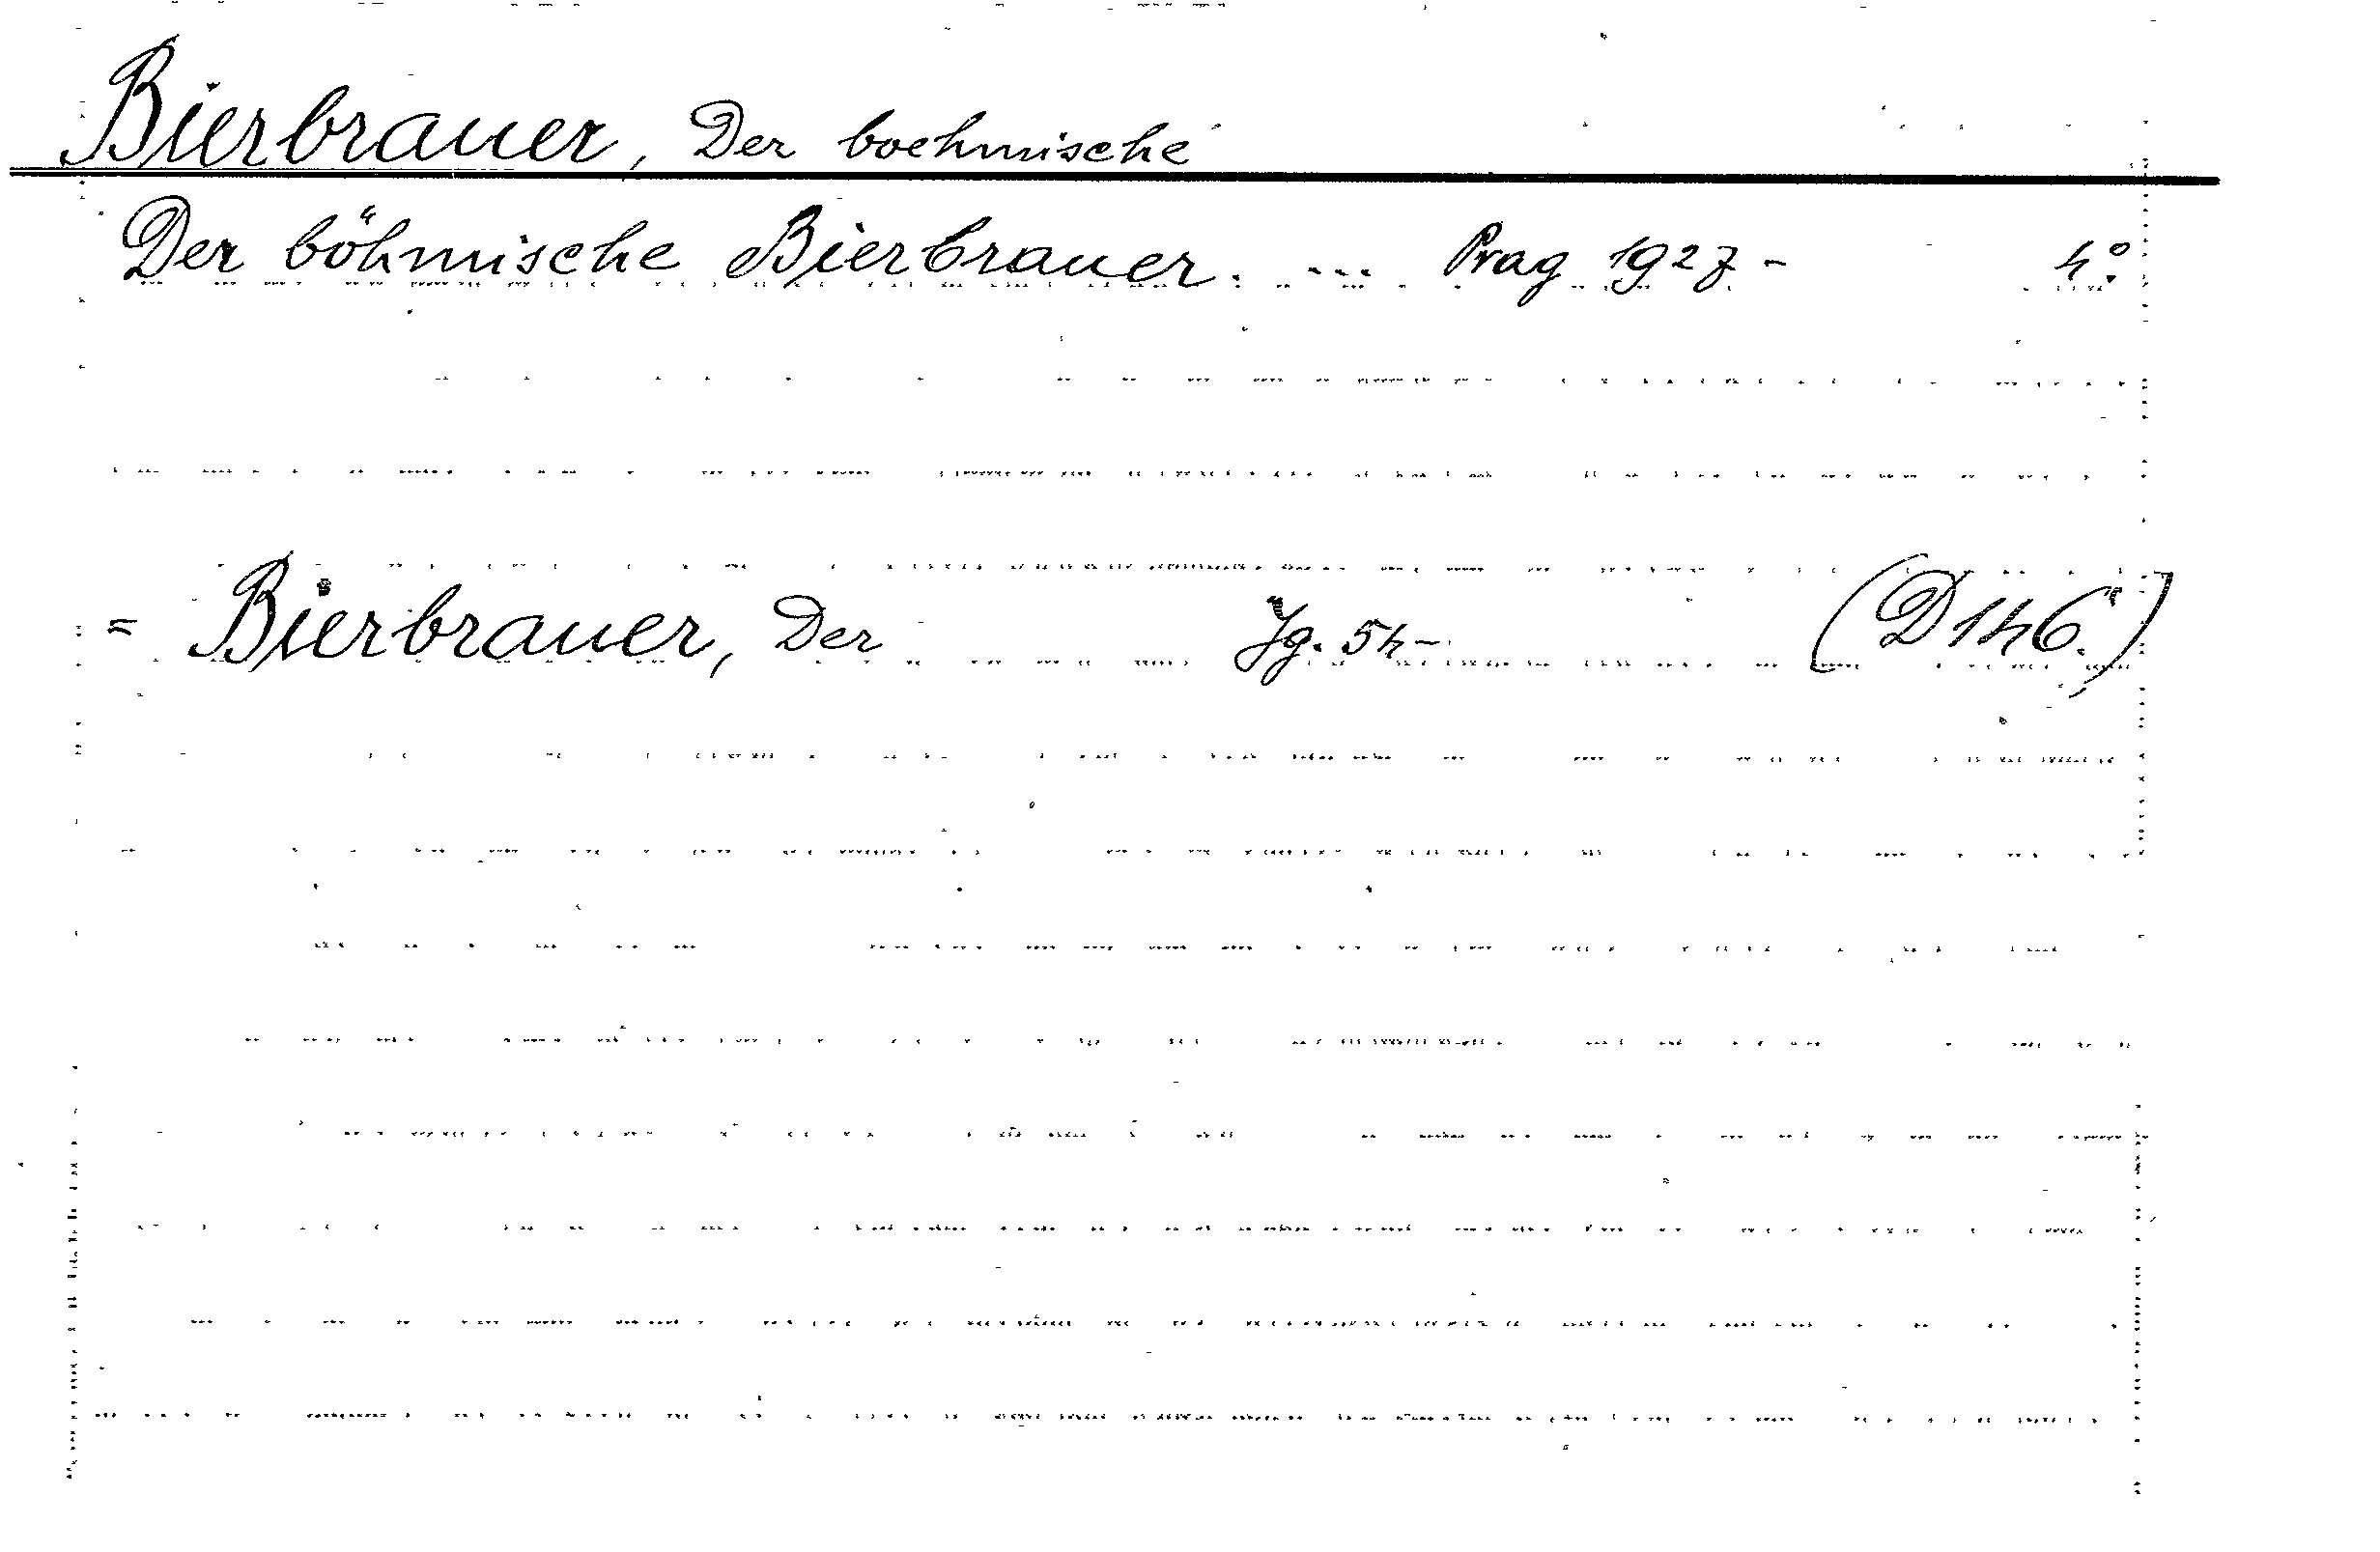 Bierbrauer, Der boehmische
Der böhmische Bierbrauer. ... Prag 1927- 4°.
= Bierbrauer, Der Jg. 54- (D 146.)